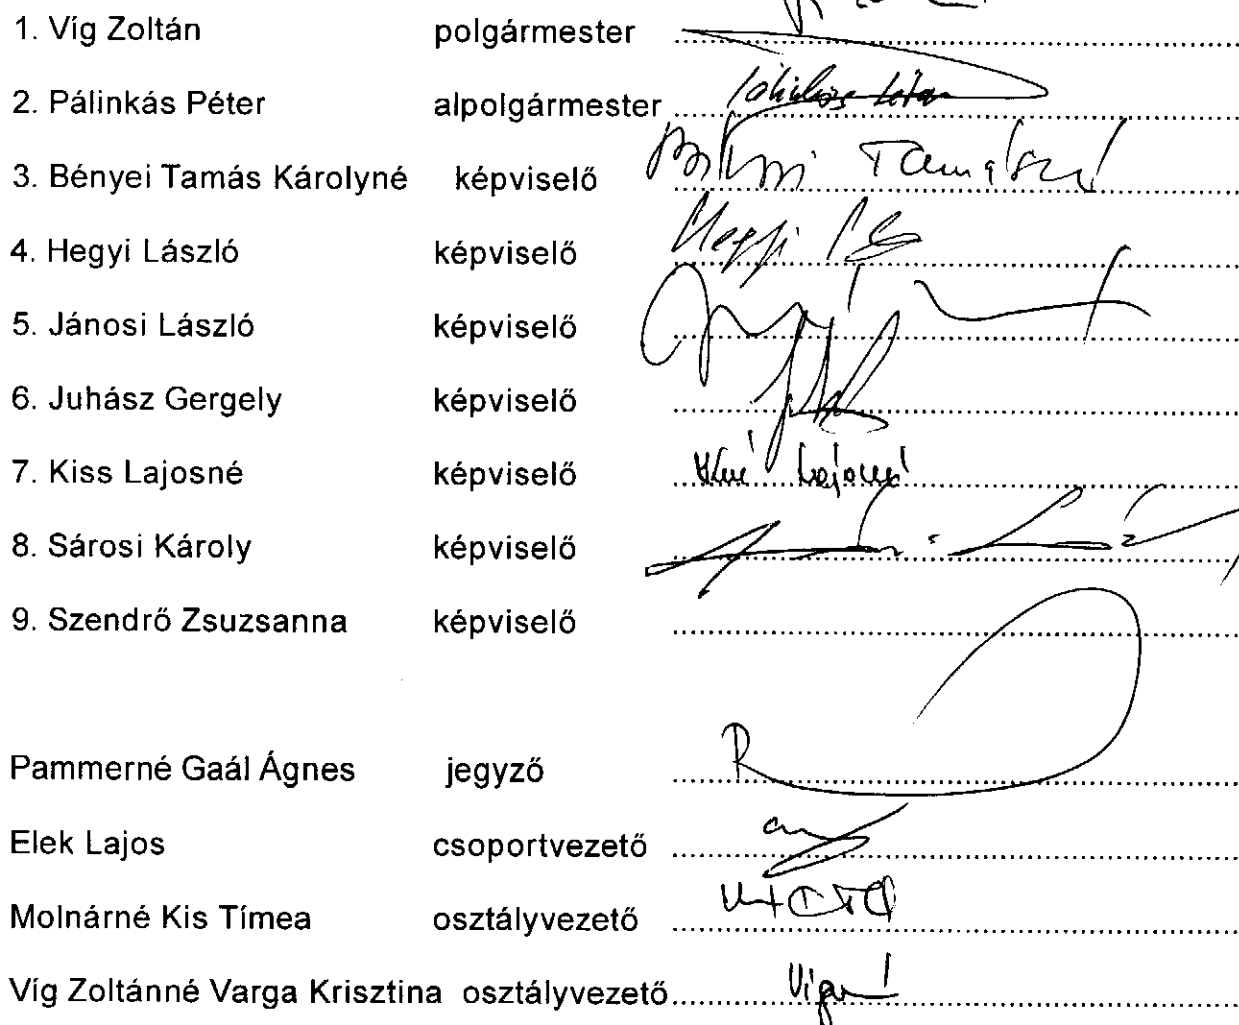 1. Víg Zoltán polgármester
2. Pálinkás Péter alpolgármester
3. Bényei Tamás Károlyné képviselő
4. Hegyi László képviselő
5. Jánosi László képviselő
6. Juhász Gergely képviselő
7. Kiss Lajosné képviselő
8. Sárosi Károly képviselő
9. Szendrő Zsuzsanna képviselő
Pammerné Gaál Ágnes jegyző
Elek Lajos csoportvezető
Molnárné Kis Tímea osztályvezető
Víg Zoltánné Varga Krisztina osztályvezető